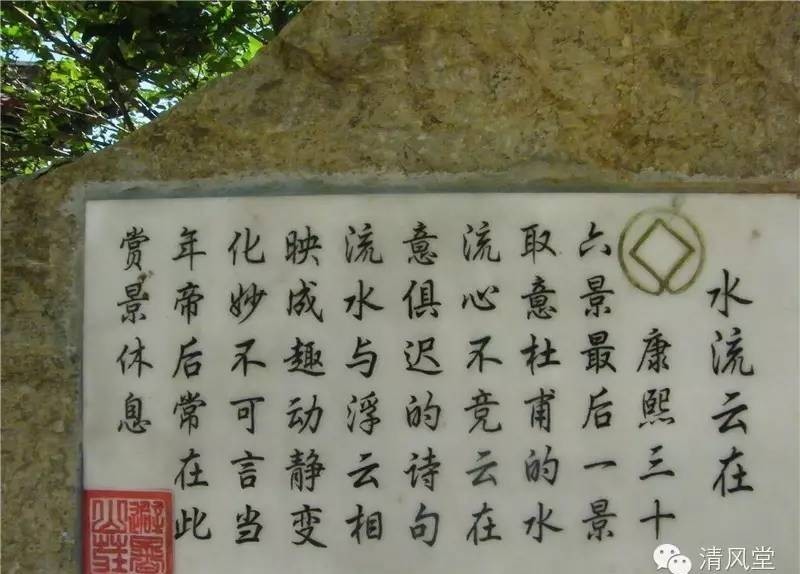 水流云在
康熙三十
六景最后一景
取意杜甫的水
流心不竞云在
意俱迟的诗句
流水与浮云相
映成趣动静变
化妙不可言当
年帝后常在此
赏景休息
避暑
山庄
清风堂